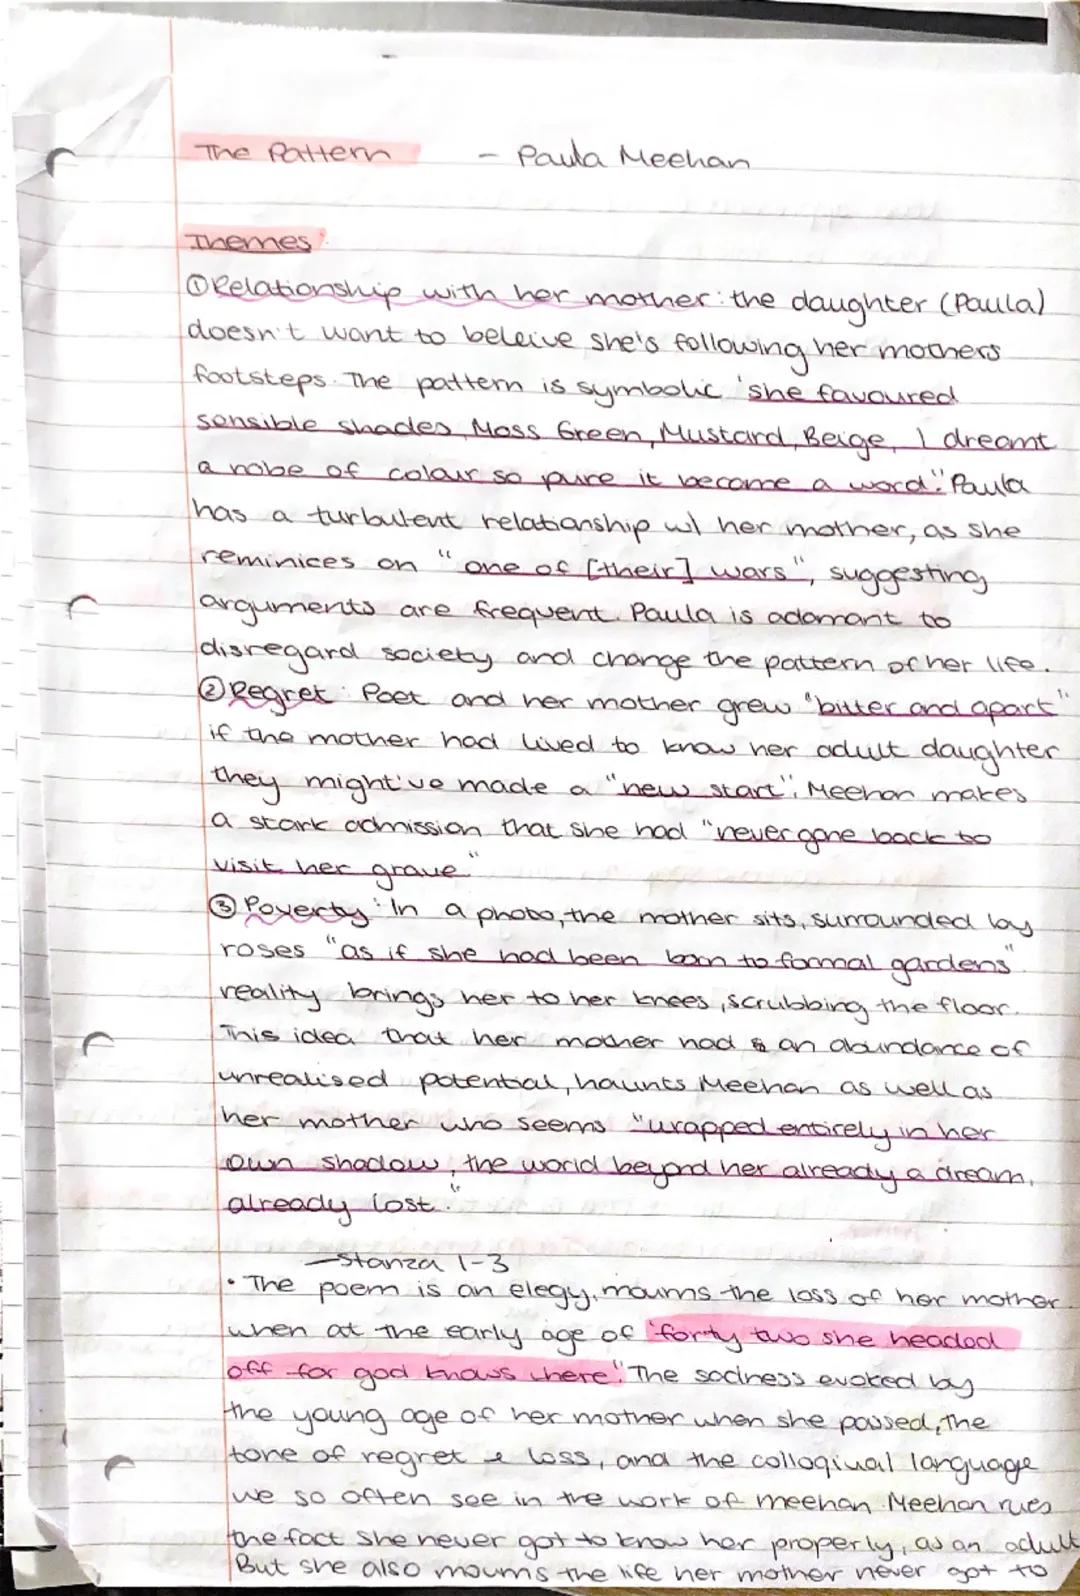 The Pattern - Paula Meehan
Themes:
① Relationship with her mother: the daughter (Paula)
doesn't want to beleive she's following her mothers
footsteps. The pattern is symbolic 'she favoured
sensible shades, Moss Green, Mustard, Beige, I dreamt
a robe of colour so pure it became a word". Paula
has a turbulent relationship w/ her mother, as she
reminices on "one of [their] wars", suggesting
arguments are frequent. Paula is adamant to
disregard society and change the pattern of her life.
② Regret: Poet and her mother grew "bitter and apart"
if the mother had lived to know her adult daughter
they might've made a "new start"; Meehan makes
a stark admission that she had "never gone back to
visit her grave"
③ Poverty: In a photo, the mother sits, surrounded by
roses "as if she had been born to formal gardens".
reality brings her to her knees, scrubbing the floor.
This idea that her mother had an abundance of
unrealised potential, haunts Meehan as well as
her mother who seems "wrapped entirely in her
own shadow, the world beyond her already a dream,
already lost."
-Stanza 1-3
• The poem is an elegy, mourns the loss of her mother
when at the early age of 'forty two she headed
off for god knows where". The sadness evoked by
the young age of her mother when she passed, the
tone of regret & loss, and the colloqiual language
we so often see in the work of meehan. Meehan rues
the fact she never got to know her properly, as an adult
But she also mourns the life her mother never got to